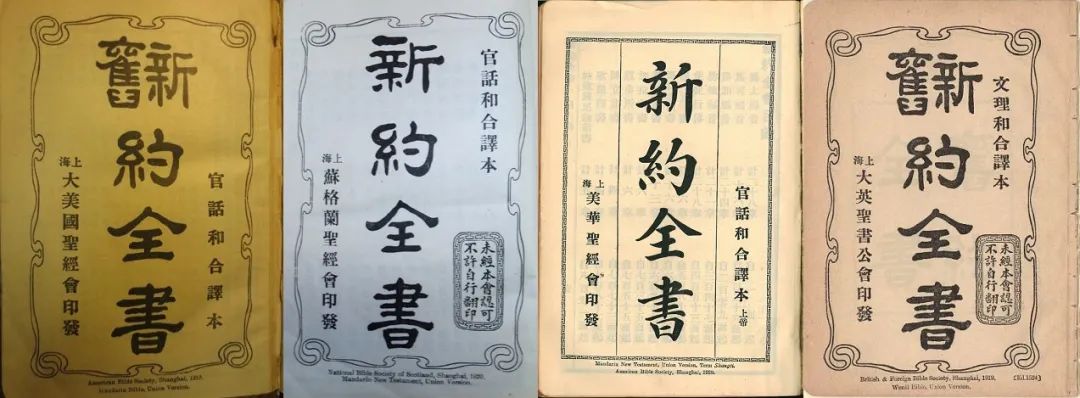 官話和合譯本
新舊約全書
上海大美國聖經會印發
American Bible Society, Shanghai,
Mandarin Bible, Union Version.
官話和合譯本
新約全書
未經本會認可
不許自行翻印
上海蘇格蘭聖經會印發
National Bible Society of Scotland, Shanghai,
Mandarin New Testament, Union Version.
官話和合譯本 上帝
新約全書
上海美華聖經會印發
Mandarin New Testament, Union Version. Term Shangti.
American Bible Society, Shanghai,
文理和合譯本
新舊約全書
未經本會認可
不許自行翻印
上海大英聖書公會印發
British & Foreign Bible Society, Shanghai, 1919.
Wenli Bible, Union Version.